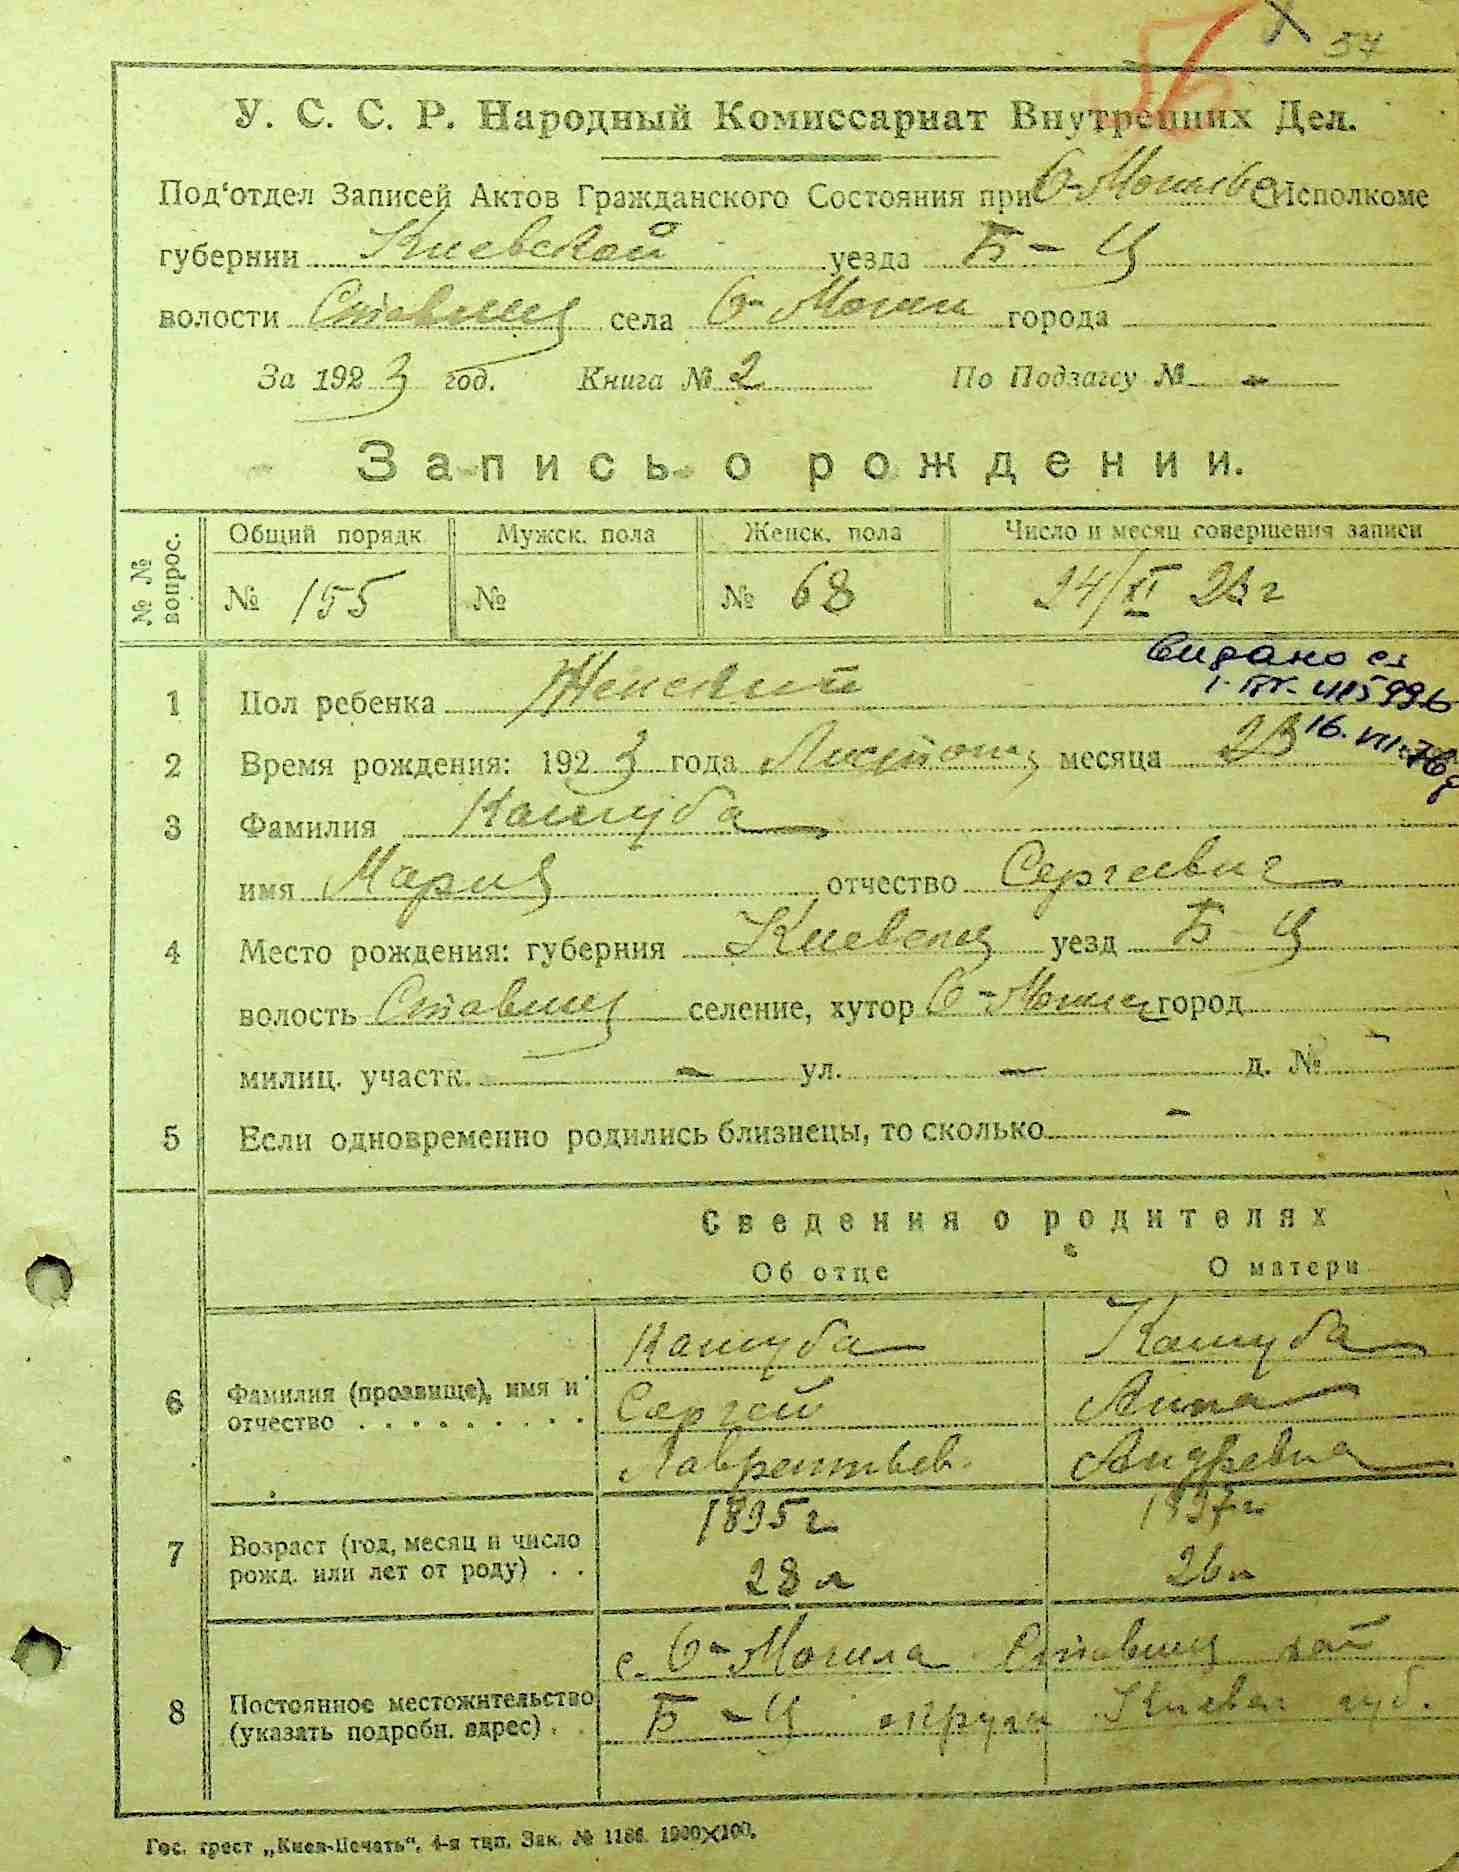 56 X 57
У. С. С. Р. Народный Комиссариат Внутренних Дел.
Под‘отдел Записей Актов Гражданского Состояния при Исполкоме
губернии Киевской уезда Б-Ц
волости Ставищ села города
За 1923 год. Книга № 2 По Подзагсу № -
Запись о рождении.
№ № вопрос.
Общий порядк Мужск. пола Женск. пола Число и месяц совершения записи
№ 155 № № 68 24/XI 23 г
Видано св
1 Пол ребенка Женский
16. VII. 76 р
2 Время рождения: 1923 года месяца 23
3 Фамилия Кашуба
имя Мария отчество Сергеевич
4 Место рождения: губерния Киевск уезд Б-Ц
волость Ставищ селение, хутор город
милиц. участк. - ул. - д. № -
5 Если одновременно родились близнецы, то сколько -
Сведения о родителях
Об отце О матери
Кашуба Кашуба
6 Фамилия (прозвище), имя и Сергей Анна
отчество Лаврентьев. Андревна
1895 г 1897 г
7 Возраст (год, месяц и число
рожд. или лет от роду) . . 28 л 26 л
с. Могила Ставищ рай
8 Постоянное местожительство Б-Ц округи Киевск губ.
(указать подробн. адрес) . .
Гос. трест „Киев-Печать“, 4-я тип. Зак. № 1186. 1000×100.